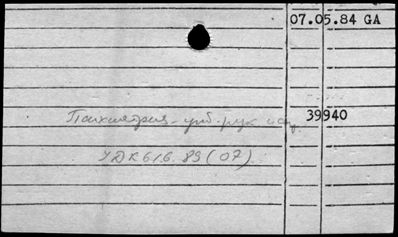 07.05.84 GA
Психиатрия - учб. рук 39940
УДК 616.89 (07)